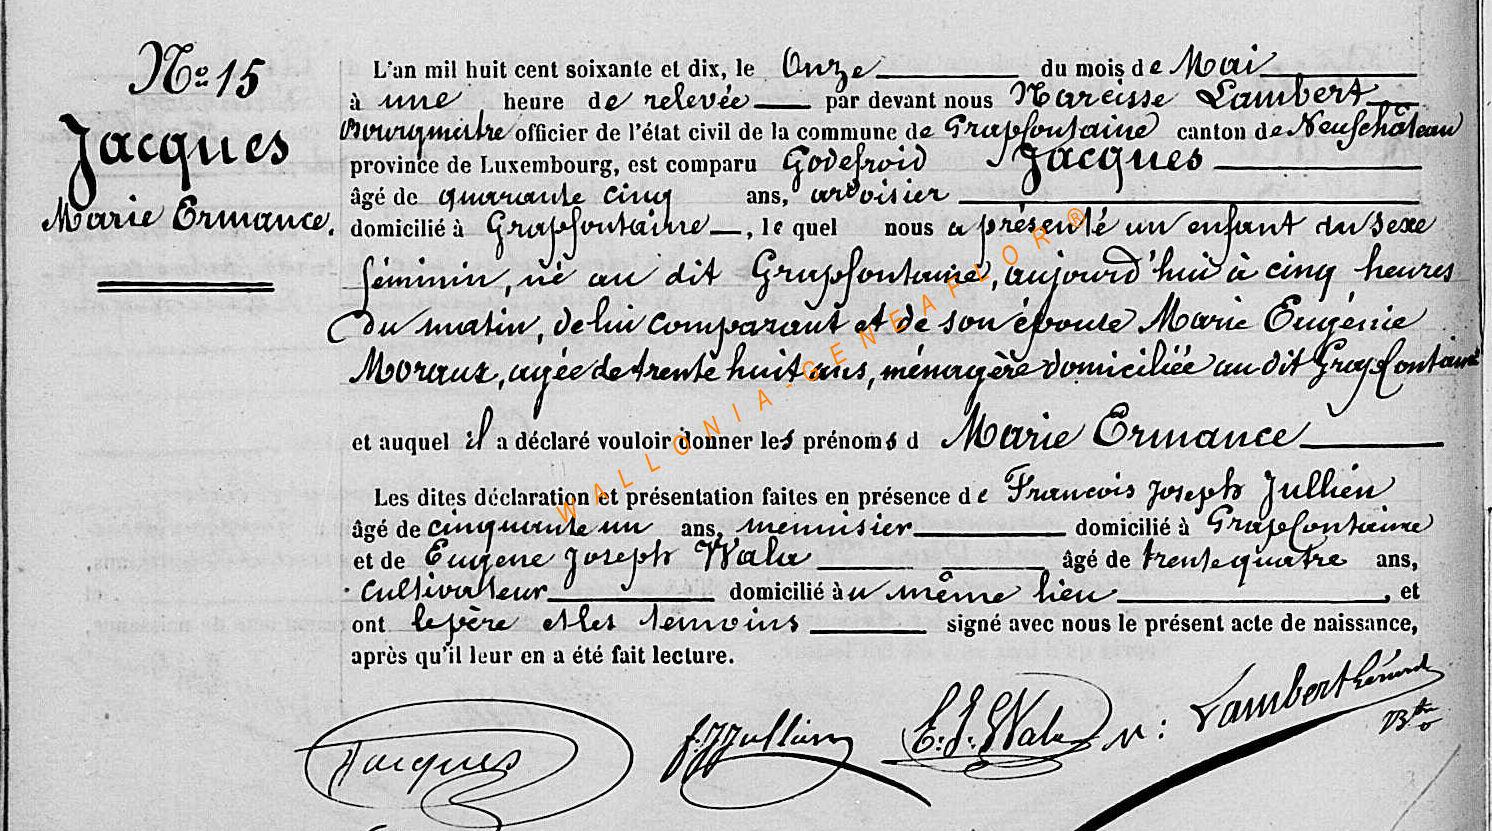 Nº 15
Jacques
Marie Ermance.
L'an mil huit cent soixante et dix, le Onze du mois de Mai
à une heure de relevée par devant nous Narcisse Lambert
Bourgmestre officier de l'état civil de la commune de Grapfontaine canton de Neufchâteau
province de Luxembourg, est comparu Godefroid Jacques
âgé de quarante cinq ans, ardoisier
domicilié à Grapfontaine, le quel nous a présenté un enfant du sexe
féminin, né au dit Grapfontaine, aujourd'hui à cinq heures
du matin, de lui comparant et de son épouse Marie Eugénie
Moraux, agée de trente huit ans, ménagère domiciliée au dit Grapfontaine
et auquel il a déclaré vouloir donner les prénoms d Marie Ermance
Les dites déclaration et présentation faites en présence de Francois Joseph Jullien
âgé de cinquante un ans, menuisier domicilié à Grapfontaine
et de Eugene Joseph Wala âgé de trente quatre ans,
cultivateur domicilié à u même lieu, et
ont le père et les temoins signé avec nous le présent acte de naissance,
après qu'il leur en a été fait lecture.
Jacques f. J Jullien E. J. Wala N: Lambert Gérard
WALLONIA-GENEAFLOR®